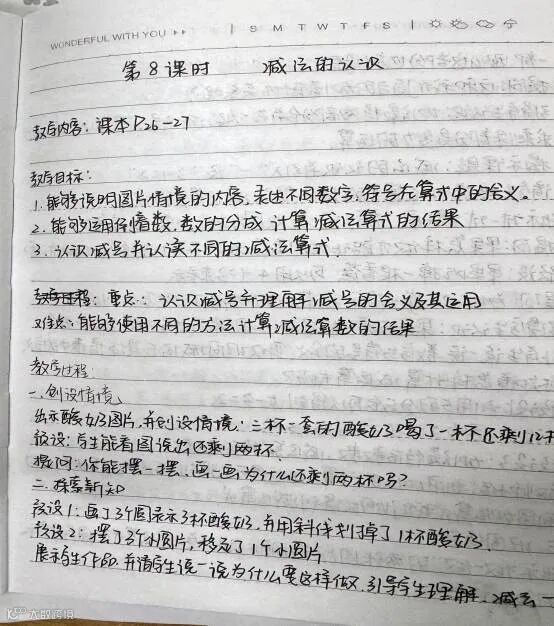 WONDERFUL WITH YOU ▸▸ | S M T W T F S |
第8课时 减法的认识
教学内容：课本P26-27
教学目标：
1. 能够说明图片情境的内容，表述不同数字，符号在算式中的含义。
2. 能够运用 数，数的分成 计算减法算式的结果
3. 认识减号并认读不同的减法算式.
教学过程：重点：认识减号并理解减号的含义及其运用
难点：能够使用不同的方法计算减法算数的结果
教学过程：
一. 创设情境
出示酸奶图片，并创设情境：三杯一套的酸奶喝了一杯还剩几杯
预设：学生能看图说出还剩两杯.
提问：你能摆一摆、画一画为什么还剩两杯吗？
二. 探索新知
预设1：画了3个圆表示3杯酸奶，并用斜线划掉了1杯酸奶.
预设2：摆了3个小图片，移走了1个小图片
展示学生作品，并请学生说一说为什么要这样做，引导学生理解，减去一
大数跨境